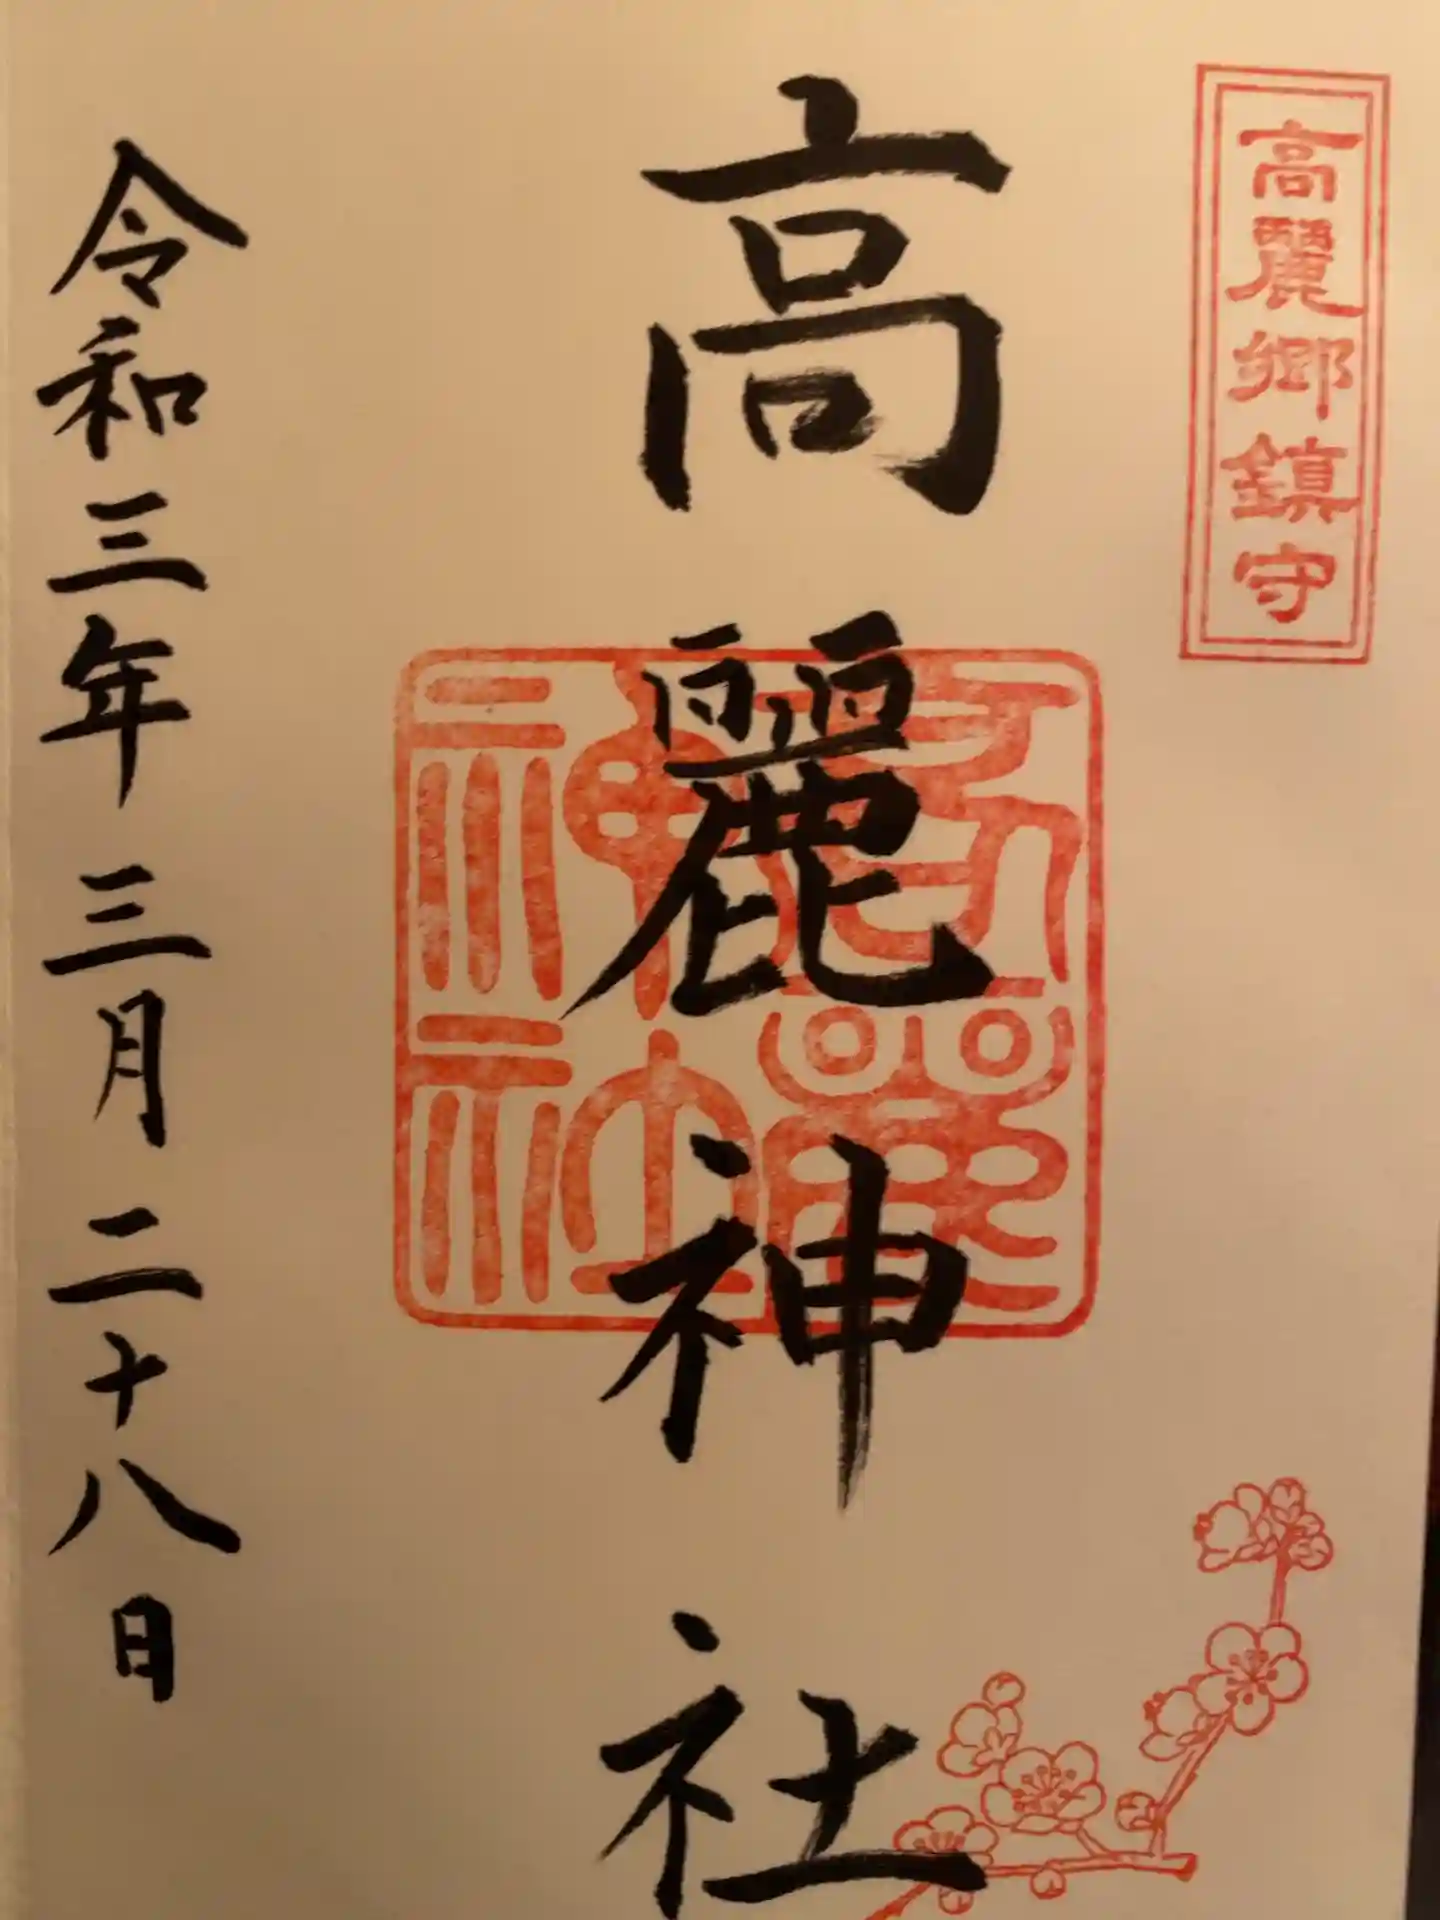 高麗郷鎮守
高麗神社
高麗神社
令和三年三月二十八日